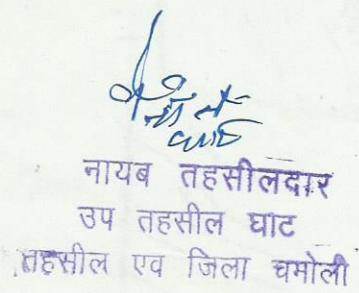 नायब तहसीलदार
उप तहसील घाट
तहसील एव जिला चमोली